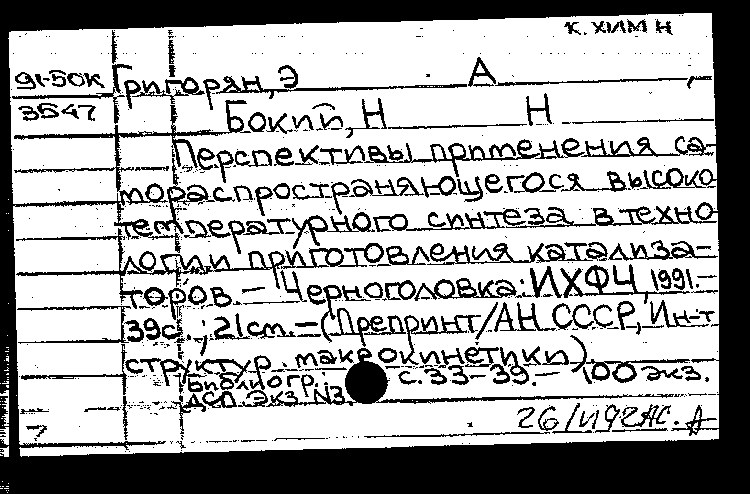 К. ХИМ Н
91-50К Григорян, Э А
3547 Бокий, Н Н
Перспективы применения са-
мораспространяющегося высоко
температурного синтеза в техно
логии приготовления катализа-
торов.- Черноголовка: ИХФЧ, 1991.-
39с.; 21см.-(Препринт/АН СССР, Ин-т
структур. макрокинетики).
Библиогр.: с.33-39.- 100 экз.
ДСП. Экз. N3.
26/
7